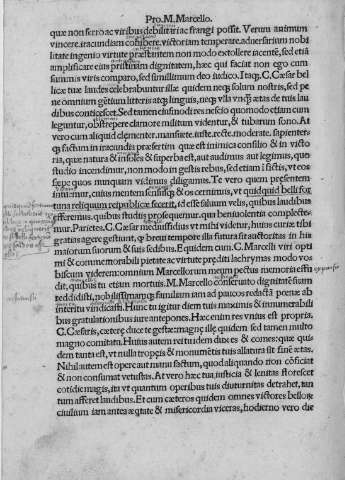 Pro.M.Marcello.
quæ non ferro ac viribus debilitari ac frangi possit. Verum animum
vincere. iracundiam cohibere. victoriam temperare. adversarium nobi
litate ingenio virtute præstantem non modo extollere iacentē, sed etiā
amplificare eius pristinam dignitatem, hæc qui faciat non ego cum
summis viris comparo, sed simillimum deo iudico. Itaq; C. Cæsar bel
licæ tuæ laudes celebrabuntur illæ quidem neq; solum nostris, sed pe
ne omnium gētium litteris atq; linguis, neq; vlla vnq̄ ætas de tuis lau
dibus conticescet. Sed tamen eiusmodi res nescio quomodo etiam cum
leguntur, obstrepere clamore militum videntur, & tubarum sono. At
vero cum aliquid clementer. mansuete. iuste. recte. moderate. sapienter
q; factum in iracundia præsertim quæ est inimica consilio & in victo
ria, quæ natura & insolēs & superba est, aut audimus aut legimus, quo
studio incendimur, non modo in gestis rebus, sed etiam ī fictis, vt eos
sæpe quos nunquam vidimus diligamus. Te vero quem præsentem
intuemur, cuius mentem sensusq; & os cernimus, vt quidquid belli for
tuna reliquum reipublicæ fecerit, id esse saluum velis, quibus laudibus
efferemus. quibus studiis prosequemur. qua beniuolentia complecte=
mur. Parietes. C. Cæsar medius fidius vt mihi videtur, huius curiæ tibi
gratias agere gestiunt, q̄ breui tempore illa futura sit auctoritas in his
maiorum suorum & suis sedibus. Equidem cum. C. Marcelli viri opti
mi & commemorabili pietate ac virtute præditi lachrymas modo vos
biscum viderem: omnium Marcellorum meum pectus memoria effu
dit, quibus tu etiam mortuis. M. Marcello conseruato dignitatē suam
reddidisti, nobilissimamq; familiam iam ad paucos redactā pœne ab
interitu vindicasti. Hunc tu igitur diem tuis maximis & innumerabili
bus gratulationibus iure antepones. Hæc enim res vnius est propria.
C. Cæsaris, cæteræ duce te gestæ: magnę illę quidem sed tamen multo
magno comitatu. Huius autem rei tu idem dux es & comes: quæ qui
dem tanta est, vt nulla tropęis & monumētis tuis allatura sit finē ætas.
Nihil autem est opere aut manu factum, quod aliquando non cōficiat
& non consumat vetustas. At vero hæc tua iusticia & lenitas florescet
cotidie magis, ita vt quantum operibus tuis diuturnitas detrahet, tan
tum afferet laudibus. Et cum cæteros quidem omnes victores bellorū
ciuilium iam antea æqtate & misericordia viceras, hodierno vero die